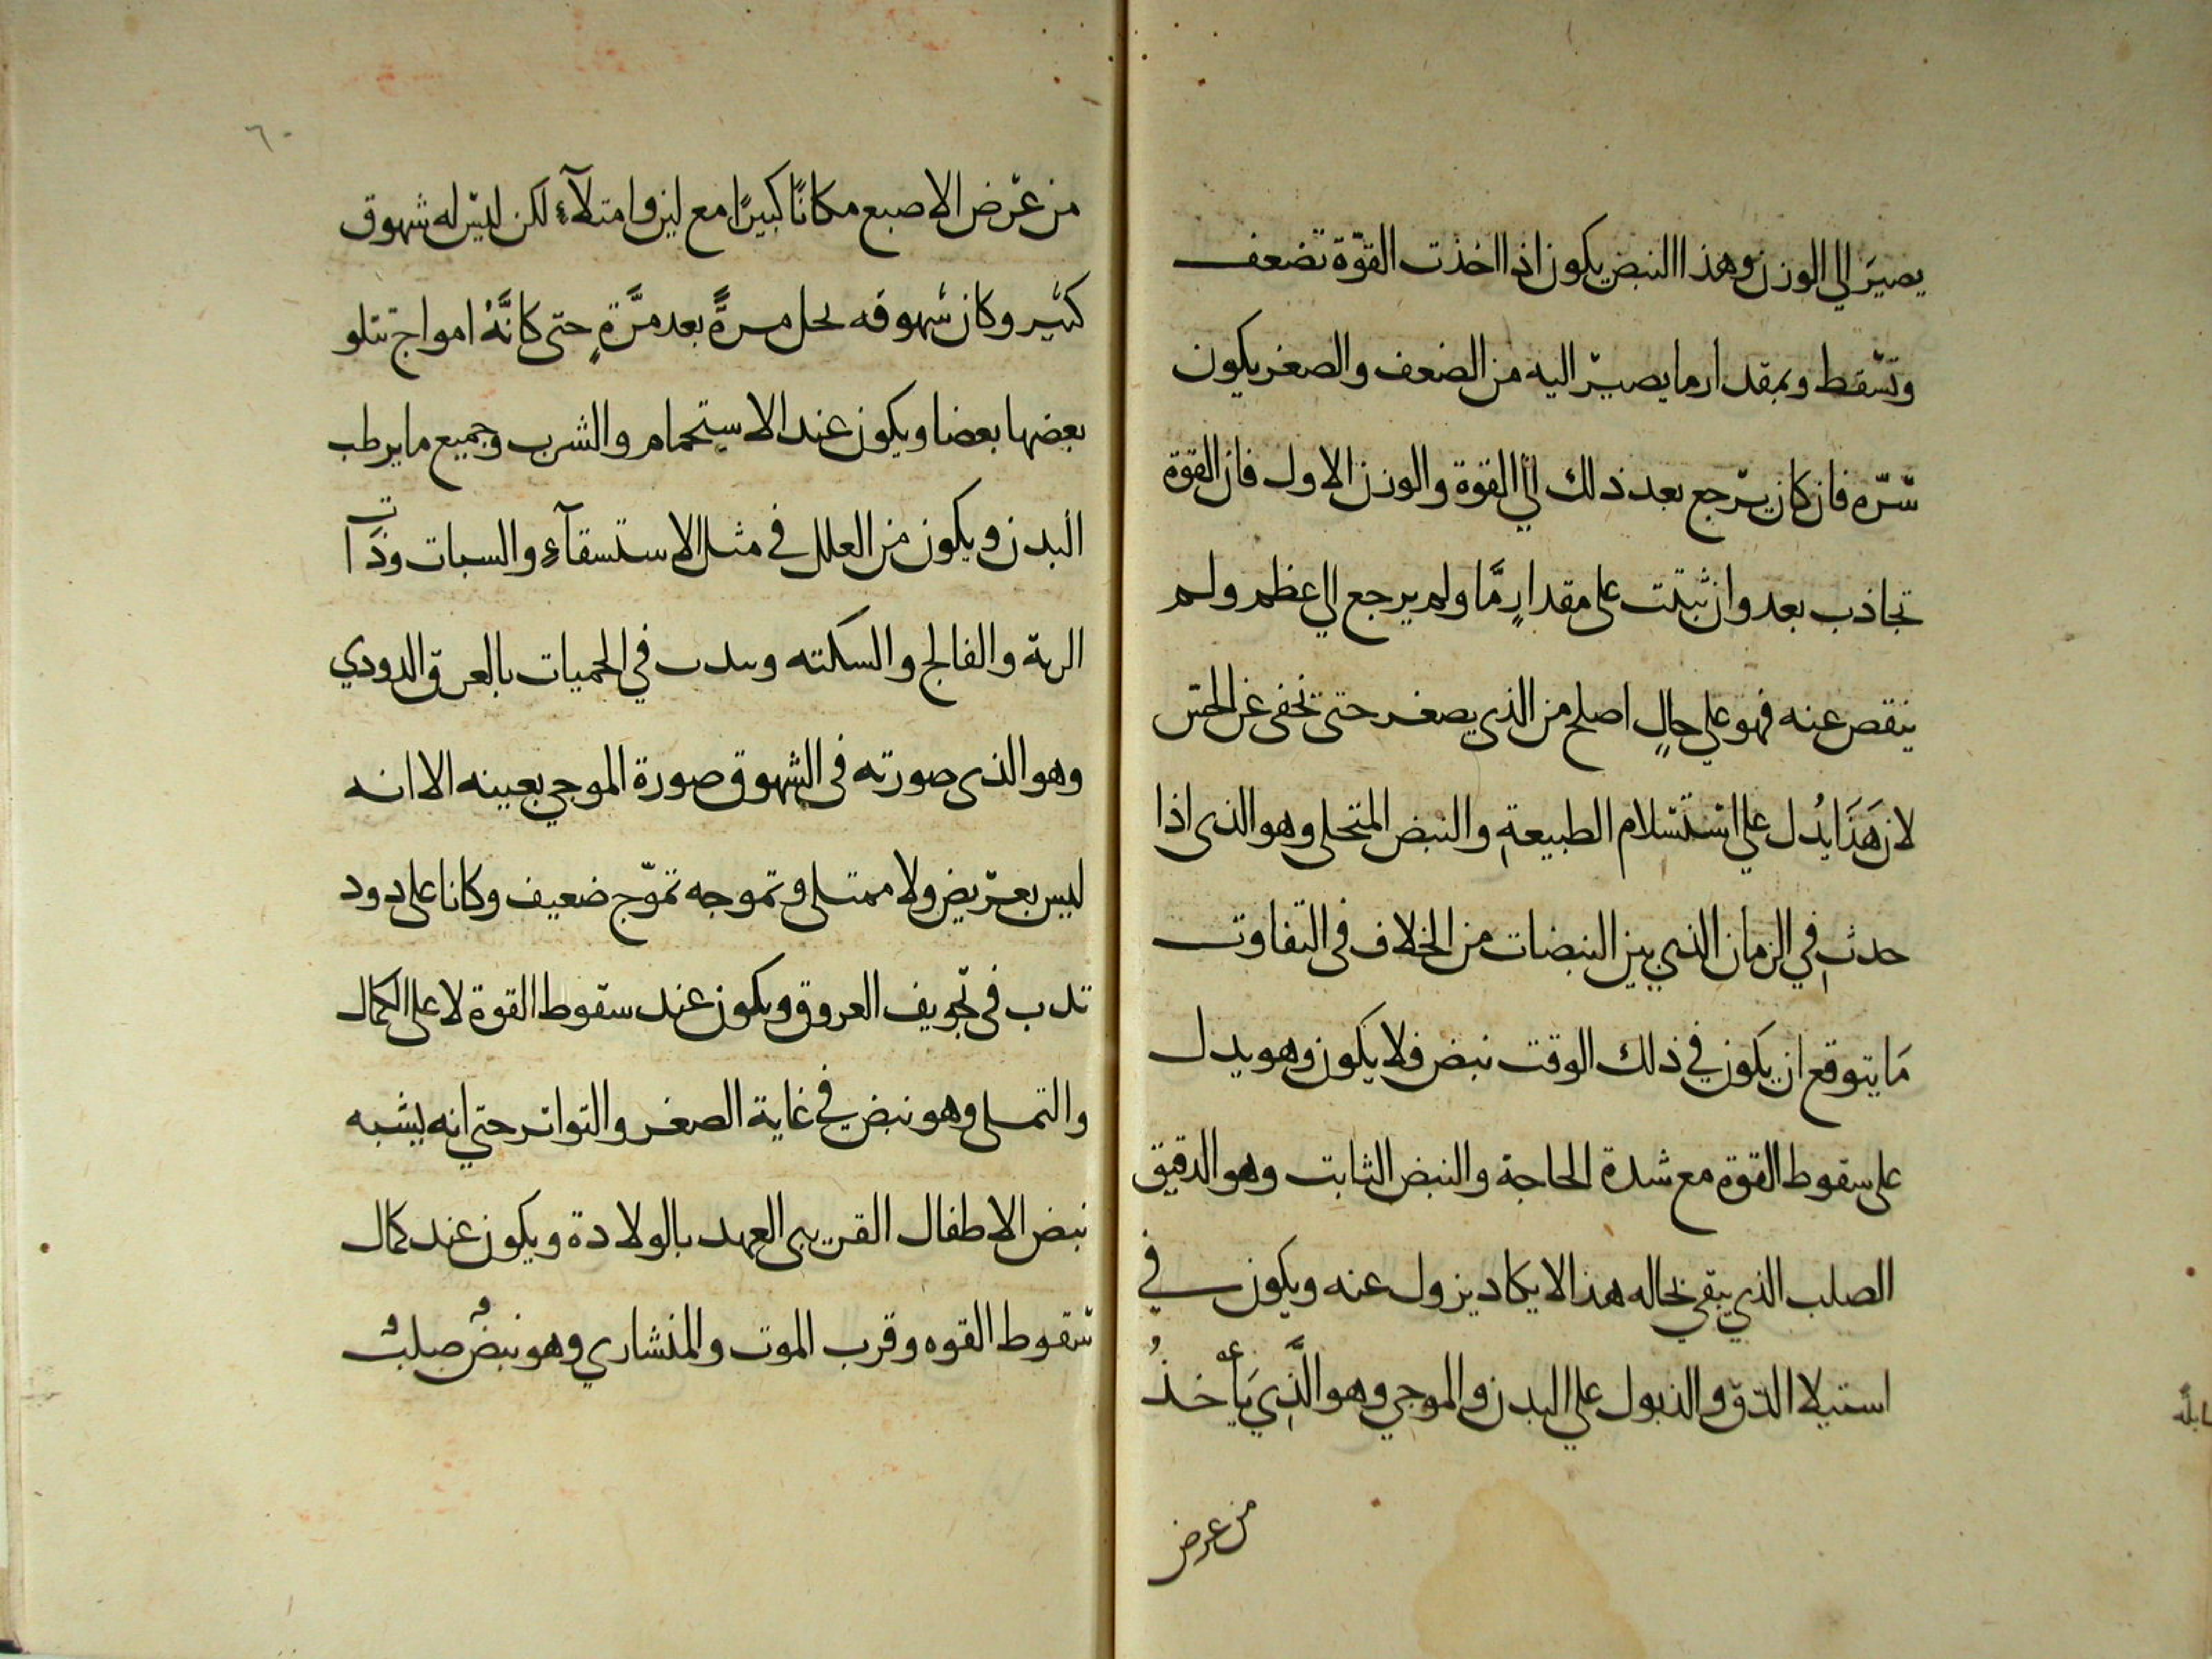 يصير الي الوزن وهذا النبض يكون اذا اخذت القوّة تضعف
وتسقط وبمقدار ما يصير اليه من الضعف والصغر يكون
شره فان كان يرجع بعد ذلك الي القوة والوزن الاول فان القوة
تجاذب بعد وان ثبتت على مقدارٍ مَّا ولم يرجع الي عظم ولم
ينقص عنه فهو علي حالٍ اصلح من الذي يصغر حتى تخفى عن الحس
لان هَذَا يدُل علي استسلام الطبيعةِ والنبض المتحلى وهو الذى اذا
حدث في الزمان الذي بين النبضات من الخلاف فى التفاوت
مَا يتوقع ان يكون في ذلك الوقت نبض فلا يكون وهو يدل
على سقوط القوة مع شدة الحاجة والنبض الثابت وهو الدقيق
الصلب الذي يبقي بحاله هذا لا يكاد يزول عنه ويكون في
استيلا الدق والذبول علي البدن والموجي وهو الَّذِي يَأخذُ
من عرض
٦٠
من عرض الاصبع مكانًا كبيرًا مع لين وامتلآء لكن ليس له شهوق
كثير وكان شهوقه مرةً بعد مرَّةٍ حتى كانَّهُ امواج تتلو
بعضها بعضا ويكون عند الاستحمام والشرب وجميع ما يرطب
البدن ويكون من العلل في مثل الاستسقآءِ والسبات وذات
الرية والفالج والسكته في الحميات بالعرق الدودي
وهو الذى صورته فى الشهوق صورة الموجي بعينه الا انه
ليس بعريض ولا ممتلى وتموجه تموّج ضعيف وكانا على دود
تدب فى تجويف العروق ويكون عند سقوط القوة لا على الكمال
والتملى وهو نبض في غاية الصغر والتواتر حتي انه يشبه
نبض الاطفال القريبى العهد بالولادة ويكون عند كمال
سقوط القوه وقرب الموت والمنشاري وهو نبضٌ صلبٌ